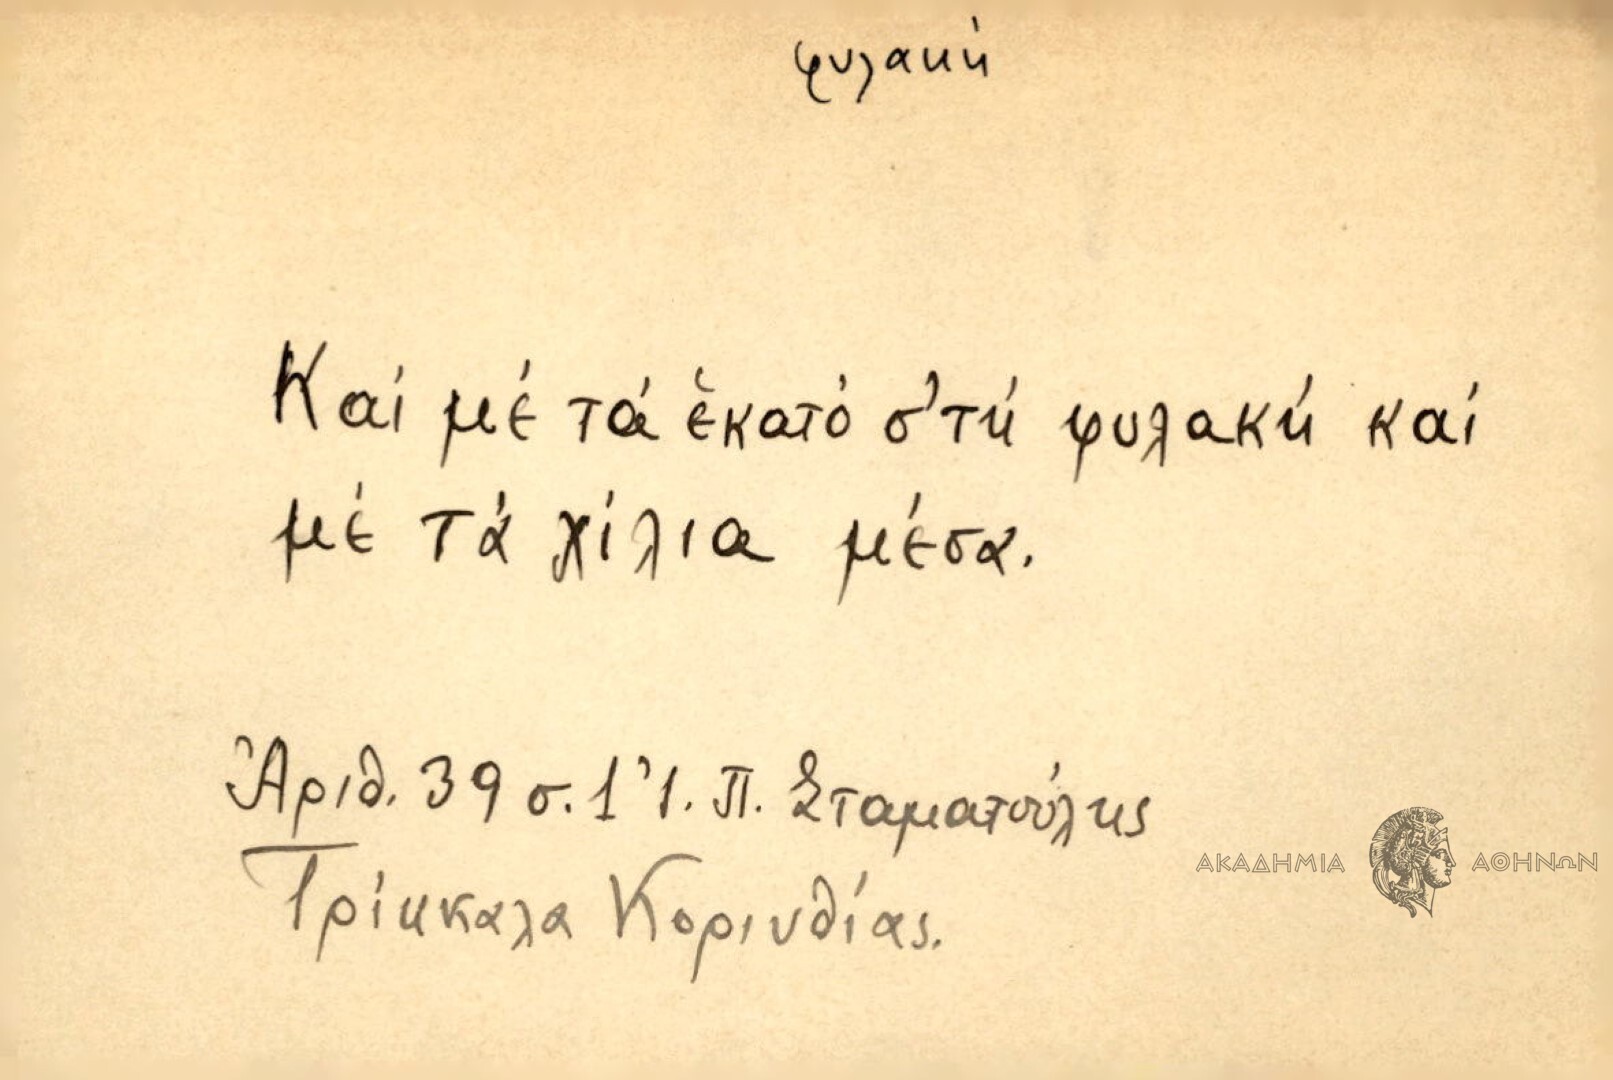 φυλακή
Καί μέ τά ἑκατό σ'τή φυλακή καί
μέ τά χίλια μέσα.
Ἀριθ. 39 σ. 1 Ἰ. Π. Σταματούλης
Τρίκκαλα Κορινθίας.
ΑΚΑΔΗΜΙΑ ΑΘΗΝΩΝ